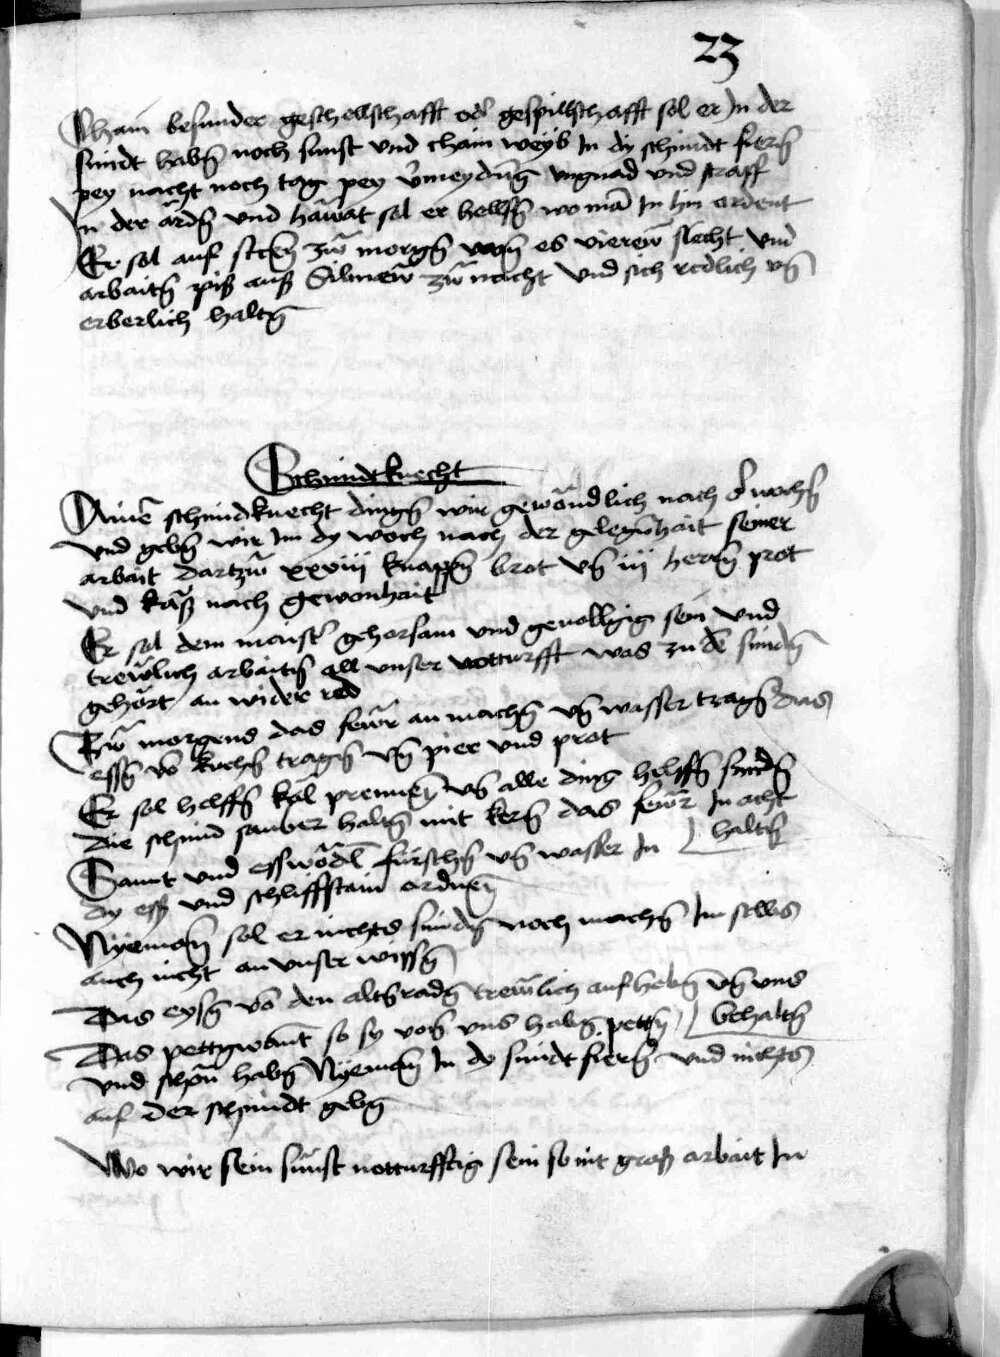 23
Chain besunder geschellschafft od' gespillschafft sol er In der
smidt habn̄ noch sunst vnd chain weyb In dy schmidt fiern̄
pey nacht noch tag pey v̄meydūg vngnad vnd straff
In der ārdn̄ vnd hāwat sol er helffn̄ wo mā In hin ordent
Er sol auf steen̄ zw̄ morgn̄ wan̄ es vierew slecht vnd
arbaitn̄ piß auß Silmew zw̄ nacht vnd sich redlich vn̄
erberlich haltn̄
Schmidtknecht
Ainē schmidknecht dingn̄ wir gewöndlich nach d' wochn̄
vnd gebn̄ wir Im dy woch nach der glegn̄hait seiner
arbait dartzw̄ xxviij knappn̄ brot vn̄ iij herrn̄ prot
vnd käß nach gewonhait
Er sol dem maist' gehorsam vnd geuollgig sein vnd
trewlich arbaitn̄ all vnser notturfft was zu d' smidn̄
gehört an wider red
Zw̄ morgens das fewr an machn̄ vn̄ wasser tragn̄ das
essn̄ vō kuchn̄ tragn̄ vn̄ pier vnd prot
Er sol helffn̄ kol prennen̄ vn̄ alle ding helffn̄ smidn̄
die schmid sauber haltn̄ mit kern̄ das fewr In acht
Samt vnd eßwödl fürschn̄ vn̄ wasser In haltn̄
dy eß vnd schleiffstain ordnen̄
Nyeman̄ sol er nichts smidn̄ noch machn̄ Im selbs
auch nicht an vnser wissn̄
Das eysn̄ vō den altn̄ radn̄ trewlich aufhebn̄ vn̄ vns
Das pettgwant so sy von̄ vns habn̄ pettn̄ behaltn̄
vnd schon̄ habn̄ Nyeman̄ In dy smidt fiern̄ vnd nichts
auf der schmidt gebn̄
Wo wir sein sunst notturfftig sein so nit groß arbait In